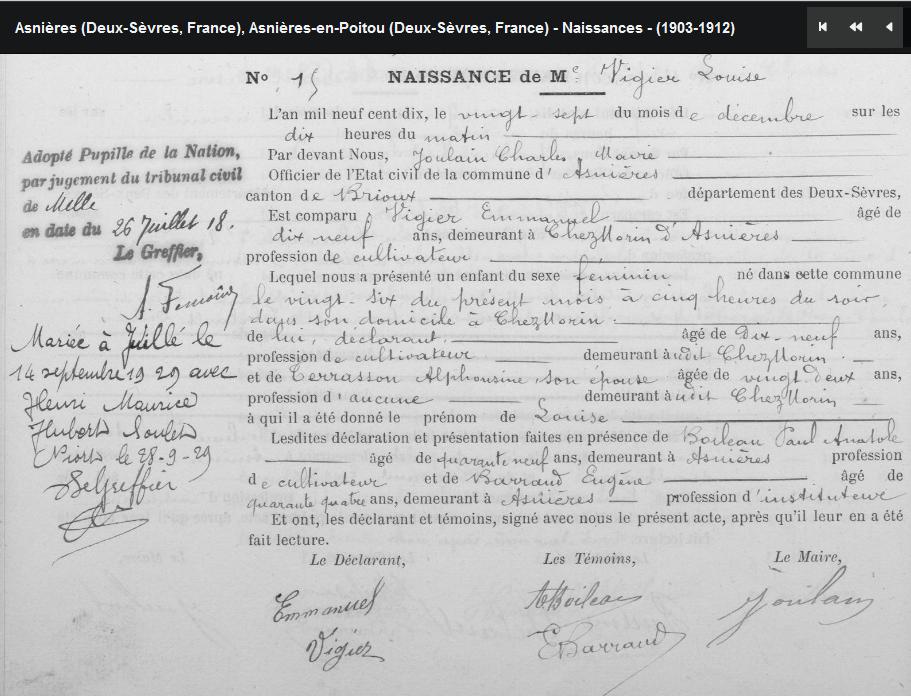 Asnières (Deux-Sèvres, France), Asnières-en-Poitou (Deux-Sèvres, France) - Naissances - (1903-1912)
No 15 NAISSANCE de Me Vigier Louise
L'an mil neuf cent dix, le vingt-sept du mois de décembre sur les
dix heures du matin
Par devant Nous, Joulain Charles, Maire
Officier de l'Etat civil de la commune d'Asnières
canton de Brioux département des Deux-Sèvres,
Est comparu Vigier Emmanuel âgé de
dix neuf ans, demeurant à Chez Morin d'Asnières
profession de cultivateur
Lequel nous a présenté un enfant du sexe féminin né dans cette commune
le vingt-six du présent mois à cinq heures du soir,
dans son domicile à Chez Morin.
de lui, déclarant. âgé de Dix-neuf ans,
profession de cultivateur demeurant à udit Chez Morin
et de Terrasson Alphonsine son épouse âgée de vingt-deux ans,
profession d'aucune demeurant à udit Chez Morin
à qui il a été donné le prénom de Louise
Lesdites déclaration et présentation faites en présence de Boileau Paul Anatole
âgé de quarante neuf ans, demeurant à Asnières profession
de cultivateur et de Barraud Eugène âgé de
quarante quatre ans, demeurant à Asnières profession d'instituteur
Et ont, les déclarant et témoins, signé avec nous le présent acte, après qu'il leur en a été
fait lecture.
Le Déclarant, Les Témoins, Le Maire,
Emmanuel
Vigier
ABoileau
EBarraud
Joulain
Adopté Pupille de la Nation,
par jugement du tribunal civil
de Melle
en date du 26 Juillet 18.
Le Greffier,
Mariée à Juillé le
14 septembre 1929 avec
Henri Maurice
Hubert Soulet
Niort le 28-9-29
Le Greffier